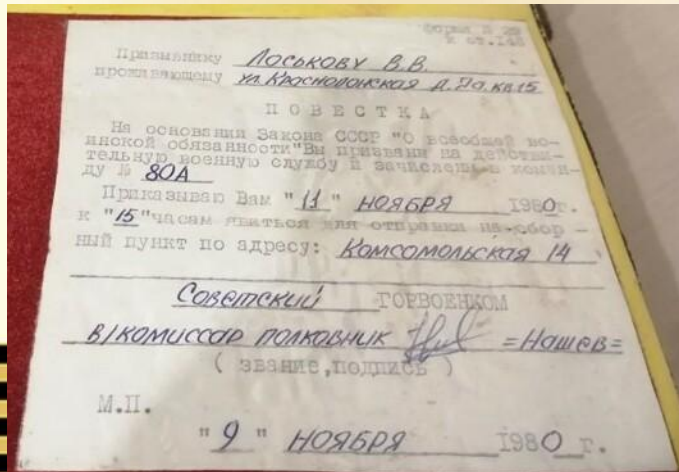 Форма № 29
к ст.146
Призывнику Лоськову В.В.
проживающему ул. Краснодонская д. 9а. кв 15
ПОВЕСТКА
На основании Закона СССР "О всеобщей во-
инской обязанности"Вы призваны на действи-
тельную военную службу и зачислены в коман-
ду № 80А
Приказываю Вам "11" ноября 1980г.
к "15"часам явиться для отправки на сбор -
ный пункт по адресу: Комсомольская 14
Советский ГОРВОЕНКОМ
в/комиссар полковник =Нашев=
( звание,подпись )
М.П.
"9" ноября 1980 г.